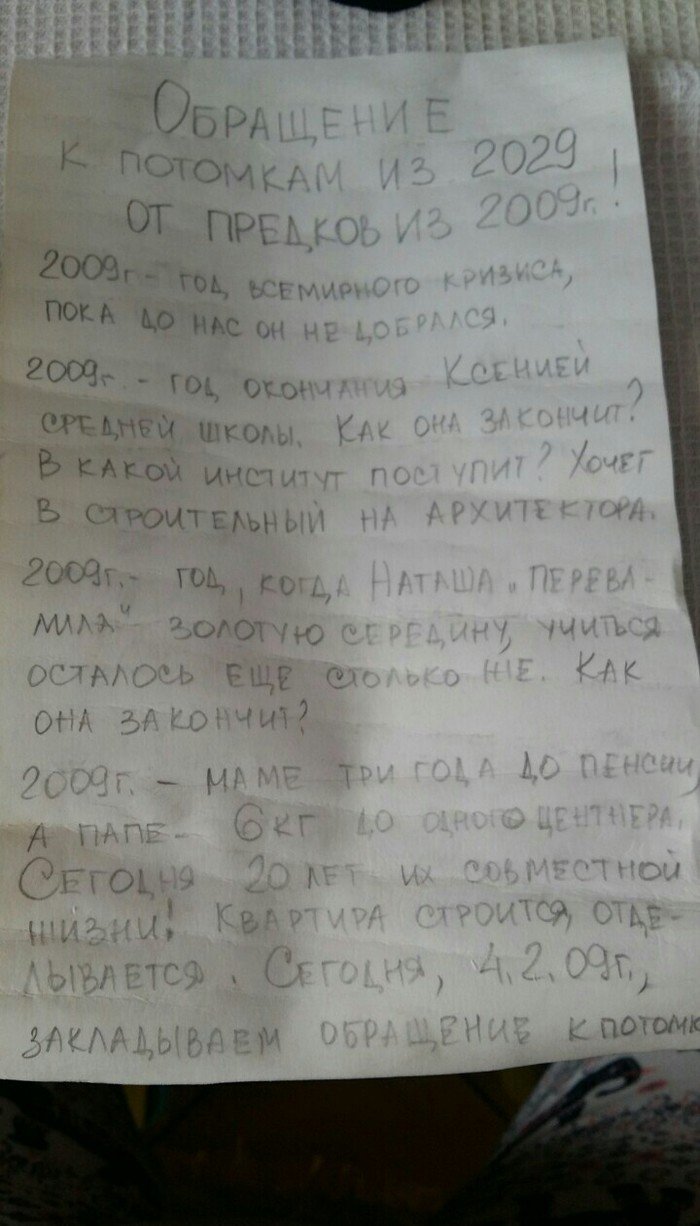 ОБРАЩЕНИЕ
К ПОТОМКАМ ИЗ 2029
ОТ ПРЕДКОВ ИЗ 2009г.!
2009г - ГОД ВСЕМИРНОГО КРИЗИСА,
ПОКА ДО НАС ОН НЕ ДОБРАЛСЯ.
2009г. - ГОД ОКОНЧАНИЯ КСЕНИЕЙ
СРЕДНЕЙ ШКОЛЫ. КАК ОНА ЗАКОНЧИТ?
В КАКОЙ ИНСТИТУТ ПОСТУПИТ? ХОЧЕТ
В СТРОИТЕЛЬНЫЙ НА АРХИТЕКТОРА.
2009г.- ГОД, КОГДА НАТАША „ПЕРЕВА-
ЛИЛА" ЗОЛОТУЮ СЕРЕДИНУ, УЧИТЬСЯ
ОСТАЛОСЬ ЕЩЕ СТОЛЬКО ЖЕ. КАК
ОНА ЗАКОНЧИТ?
2009г. - МАМЕ ТРИ ГОДА ДО ПЕНСИИ,
А ПАПЕ - 6 КГ ДО ОДНОГО ЦЕНТНЕРА.
СЕГОДНЯ 20 ЛЕТ ИХ СОВМЕСТНОЙ
ЖИЗНИ! КВАРТИРА СТРОИТСЯ, ОТДЕ-
ЛЫВАЕТСЯ. СЕГОДНЯ, 4.2.09г.,
ЗАКЛАДЫВАЕМ ОБРАЩЕНИЕ К ПОТОМК